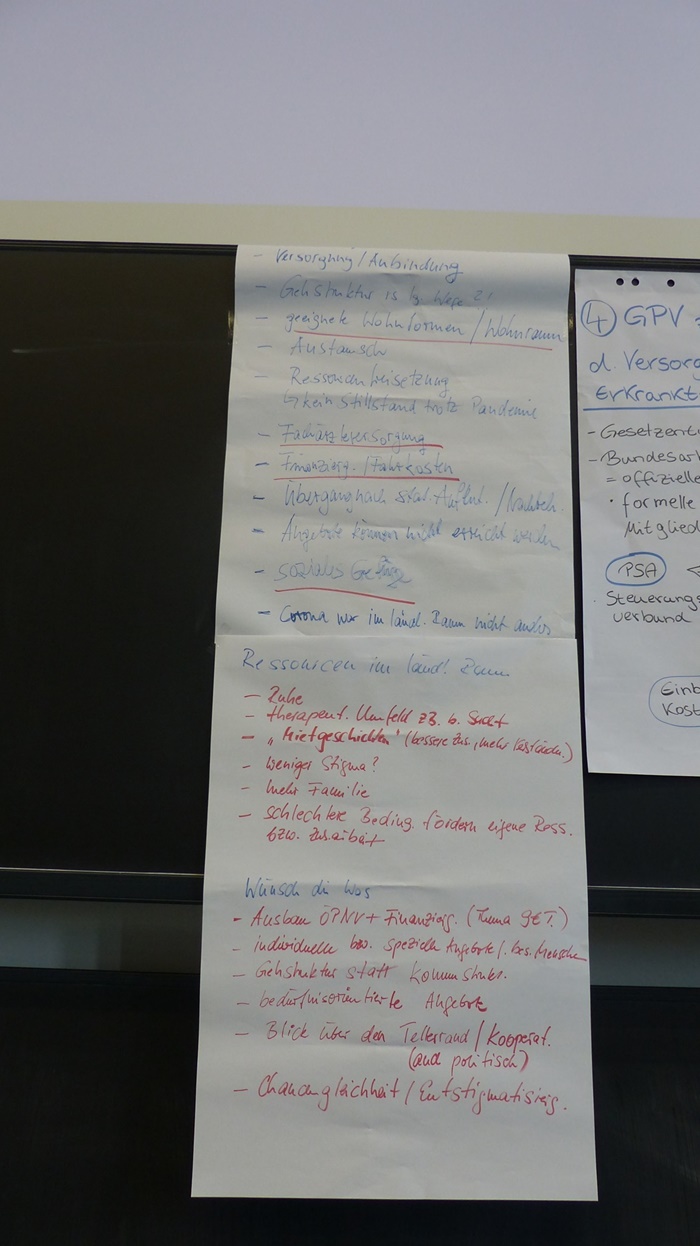 - Versorgung / Anbindung
- Gehstruktur
- geeignete Wohnformen / Wohnraum
- Austausch
- Ressourcenfreisetzung
↳ kein Stillstand trotz Pandemie
- Fachärzteversorgung
- Finanzierg. / Fahrkosten
- Übergang nach stat. Aufent. /
- Angebote können nicht erreicht werden
- soziales Gefüge
- Corona war im ländl. Raum nicht anders
Ressourcen im ländl. Raum
- Ruhe
- therapeut. Umfeld z.B. b. Sucht
- "Mietgeschichten" (bessere Zus., mehr Verständn.)
- weniger Stigma?
- mehr Familie
- schlechtere Beding. fördern eigene Ress.
bzw. Zus.arbeit
Wünsch dir was
- Ausbau ÖPNV + Finanzierg. (Thema 9€T.)
- individuelle bzw. spezielle Angebote f. bes. Menschen
- Gehstruktur statt Kommstrukt.
- bedürfnisorientierte Angebote
- Blick über den Tellerrand / Kooperat.
(auch politisch)
- Chancengleichheit / Entstigmatisierg.
④ GPV =
d. Versorg
Erkrankt
- Gesetzent
- Bundesar
= offizielle
· formelle
Mitglied
PSA
Steuerungs
verbund
Einb
Kost